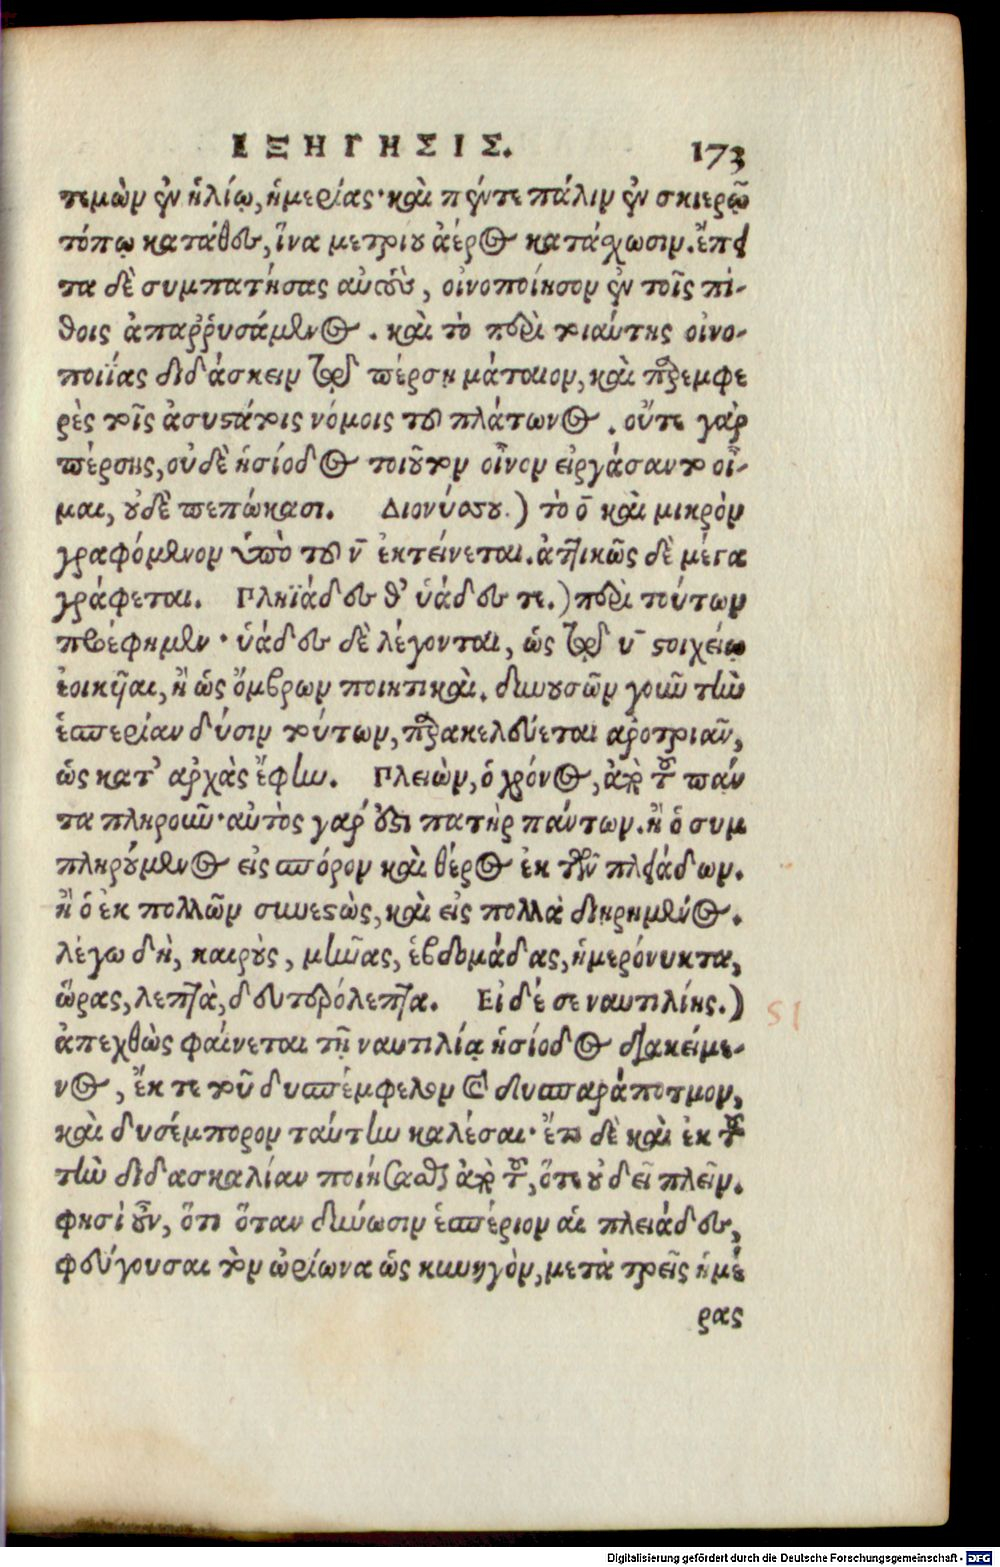 ΕΞΗΓΗΣΙΣ. 173
τεμὼν ἐν ἡλίῳ, ἡμερίας· καὶ πέντε πάλιν ἐν σκιερῷ
τόπῳ κατάθου, ἵνα μετρίου ἀέρος κατάχωσιν. ἔπει
τα δὲ συμπατήσας αὐτοὺς, οἰνοποίησον ἐν τοῖς πί-
θοις ἀπαῤῥυσάμενος. καὶ τὸ περὶ τοιαύτης οἰνο-
ποιΐας διδάσκειν τῷ πέρσῃ μάταιον, καὶ παρεμφε
ρὲς τοῖς ἀσυστάτοις νόμοις τοῦ πλάτωνος. οὔτε γὰρ
πέρσης, οὐδὲ ἡσίοδος τοιοῦτον οἶνον εἰργάσαντο οἶ-
μαι, οὐδὲ πεπώκασι. Διονύσου.) τὸ ο̄ καὶ μικρὸν
γραφόμενον ὑπὸ τοῦ ν̄ ἐκτείνεται. ἀττικῶς δὲ μέγα
γράφεται. Πληϊάδες θ' ὑάδες τε.) περὶ τούτων
προέφημεν· ὑάδες δὲ λέγονται, ὡς τῷ ῡ στοιχείῳ
ἐοικυῖαι, ἢ ὡς ὄμβρων ποιητικαὶ. δυνουσῶν γοῦν τὴν
ἑσπερίαν δύσιν τούτων, παρακελεύεται ἀροτριᾶν,
ὡς κατ' ἀρχὰς ἔφην. Πλειὼν, ὁ χρόνος, παρὰ τὸ πάν
τα πληροῦν· αὐτὸς γάρ ἐστι πατὴρ πάντων. ἢ ὁ συμ
πληρούμενος εἰς σπόρον καὶ θέρος ἐκ τῶν πλειάδων.
ἢ ὁ ἐκ πολλῶν συνεστὼς, καὶ εἰς πολλὰ διῃρημένος.
λέγω δὴ, καιροὺς, μῆνας, ἑβδομάδας, ἡμερόνυκτα,
ὥρας, λεπτὰ, δευτερόλεπτα. Εἰ δέ σε ναυτιλίης.)
ἀπεχθῶς φαίνεται τῇ ναυτιλίᾳ ἡσίοδος διακείμε-
νος, ἔκ τε τοῦ δυσπέμφελον καὶ δυσπαράποτμον,
καὶ δυσέμπορον ταύτην καλέσαι· ἔτι δὲ καὶ ἐκ τοῦ
τὴν διδασκαλίαν ποιήσασθαι παρὰ τὸ, ὅτι οὐ δεῖ πλεῖν.
φησὶ οὖν, ὅτι ὅταν δύνωσιν ἑσπέριον αἱ πλειάδες,
φεύγουσαι τὸν ὠρίωνα ὡς κυνηγὸν, μετὰ τρεῖς ἡμέ
ρας
51
Digitalisierung gefördert durch die Deutsche Forschungsgemeinschaft - DFG